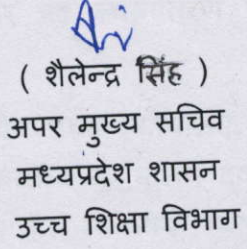 ( शैलेन्द्र सिंह )
अपर मुख्य सचिव
मध्यप्रदेश शासन
उच्च शिक्षा विभाग